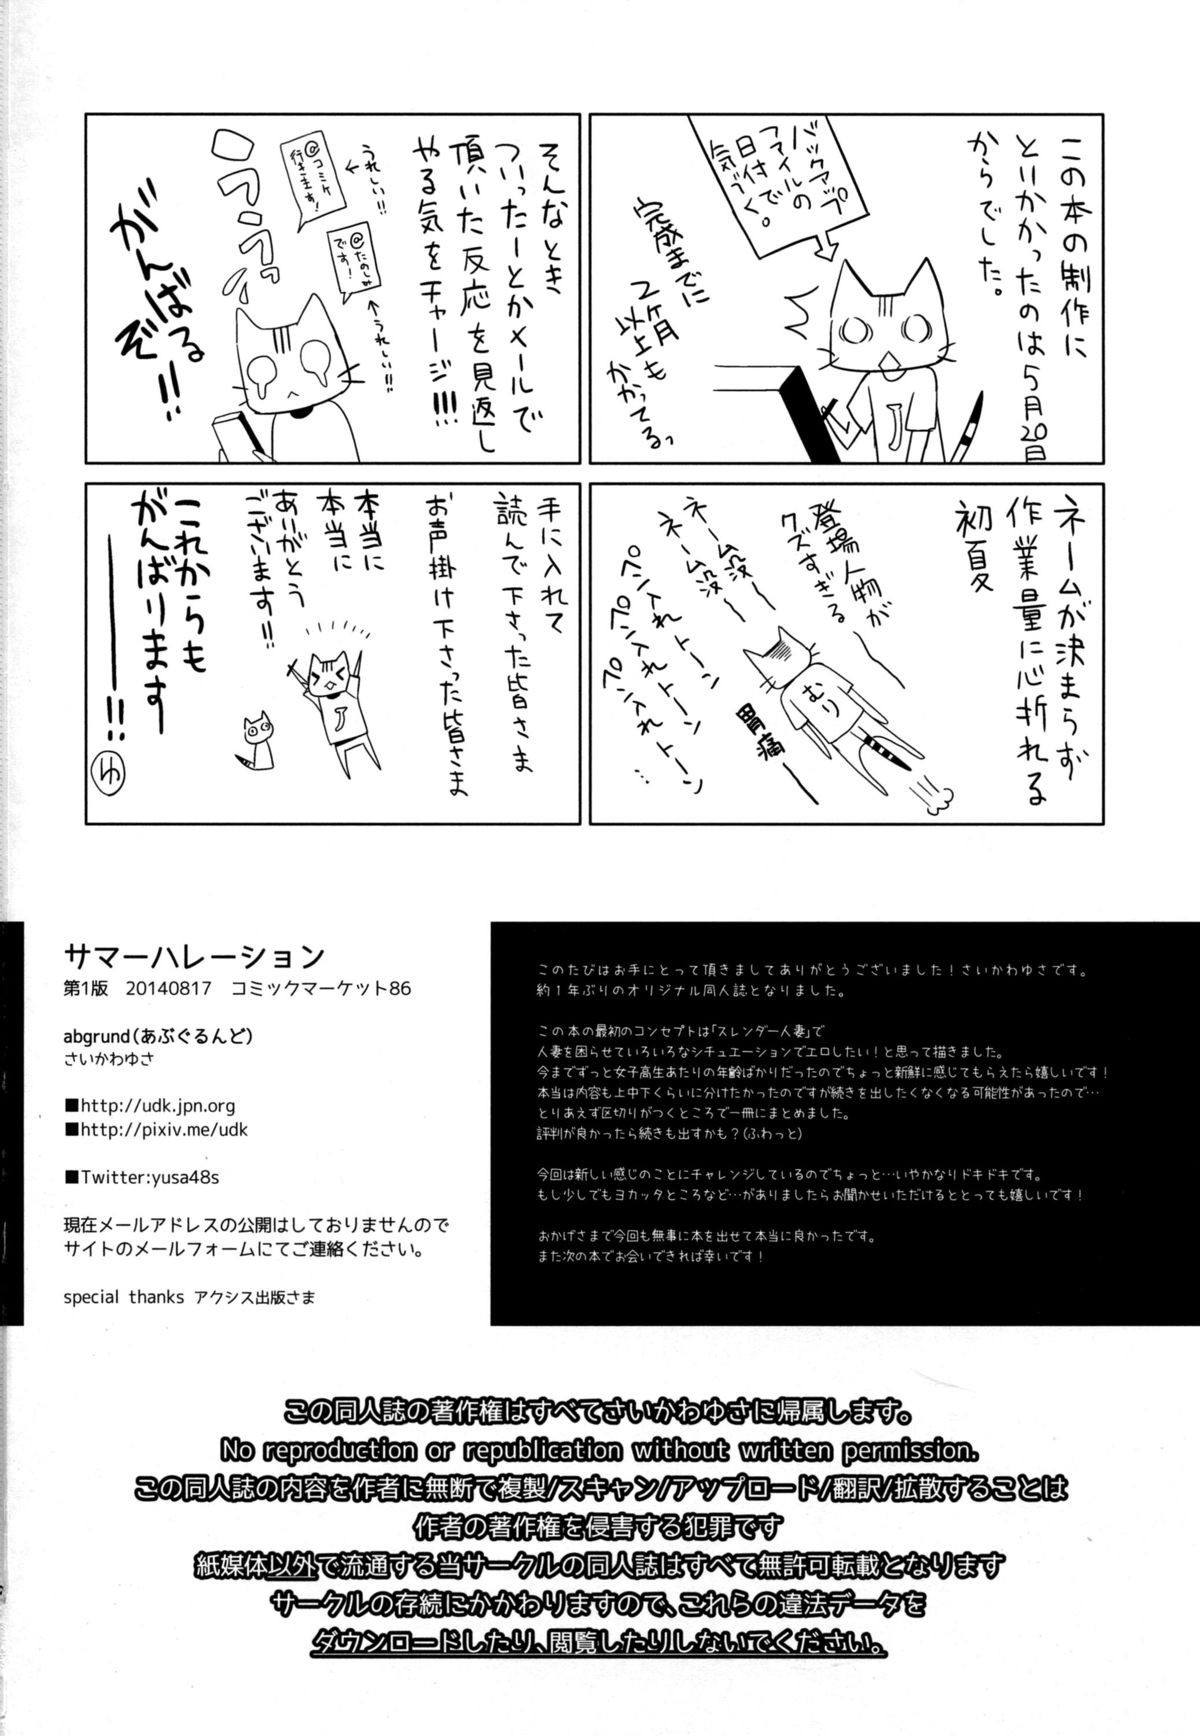 この本の制作に
とりかかったのは5月20日
からでした。
バックアップ
ファイルの
日付で
気づく。
完成までに
2ヶ月
以上も
かかってるっ
そんなとき
ついったーとかメールで
頂いた反応を見返し
やる気をチャージ!!!
うれしい!!
@コミケ
行きます!
@たのしみ
です!
うれしい!!
がんばる
ぞ!!
ネームが決まらず
作業量に心折れる
初夏
登場人物が
クズすぎるー
ネーム没ー
ネーム没ー
ペン入れトーン
ペン入れトーン
ペン入れトーン…
むり
胃痛ー
手に入れて
読んで下さった皆さま
お声掛け下さった皆さま
本当に
本当に
ありがとう
ございます!!
これからも
がんばります
――!!
ゆ
サマーハレーション
第1版 20140817 コミックマーケット86
abgrund(あぶぐるんど)
さいかわゆさ
■http://udk.jpn.org
■http://pixiv.me/udk
■Twitter:yusa48s
現在メールアドレスの公開はしておりませんので
サイトのメールフォームにてご連絡ください。
special thanks アクシス出版さま
このたびはお手にとって頂きましてありがとうございました!さいかわゆさです。
約1年ぶりのオリジナル同人誌となりました。
この本の最初のコンセプトは「スレンダー人妻」で
人妻を困らせていろいろなシチュエーションでエロしたい!と思って描きました。
今までずっと女子高生あたりの年齢ばかりだったのでちょっと新鮮に感じてもらえたら嬉しいです!
本当は内容も上中下くらいに分けたかったのですが続きを出したくなくなる可能性があったので…
とりあえず区切りがつくところで一冊にまとめました。
評判が良かったら続きも出すかも?(ふわっと)
今回は新しい感じのことにチャレンジしているのでちょっと…いやかなりドキドキです。
もし少しでもヨカッタところなど…がありましたらお聞かせいただけるととっても嬉しいです!
おかげさまで今回も無事に本を出せて本当に良かったです。
また次の本でお会いできれば幸いです!
この同人誌の著作権はすべてさいかわゆさに帰属します。
No reproduction or republication without written permission.
この同人誌の内容を作者に無断で複製/スキャン/アップロード/翻訳/拡散することは
作者の著作権を侵害する犯罪です
紙媒体以外で流通する当サークルの同人誌はすべて無許可転載となります
サークルの存続にかかわりますので、これらの違法データを
ダウンロードしたり、閲覧したりしないでください。